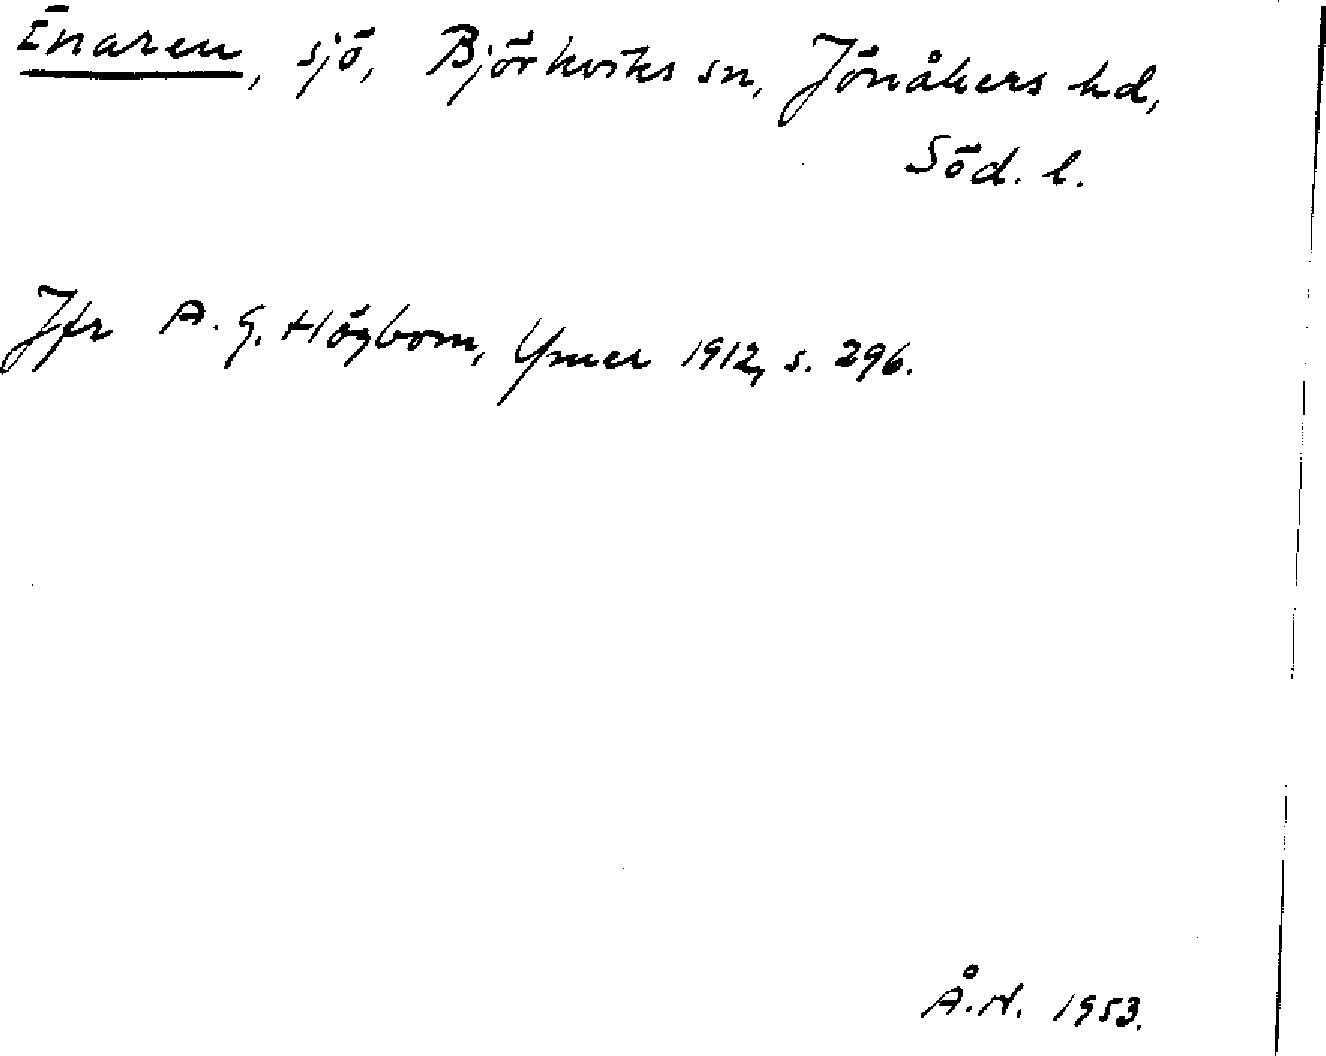 Enaren, sjö, Björkviks sn, Jönåkers hd,
Söd. l.
Jfr A. G. Högbom, Ymer 1912, s. 296.
Å.N. 1953.